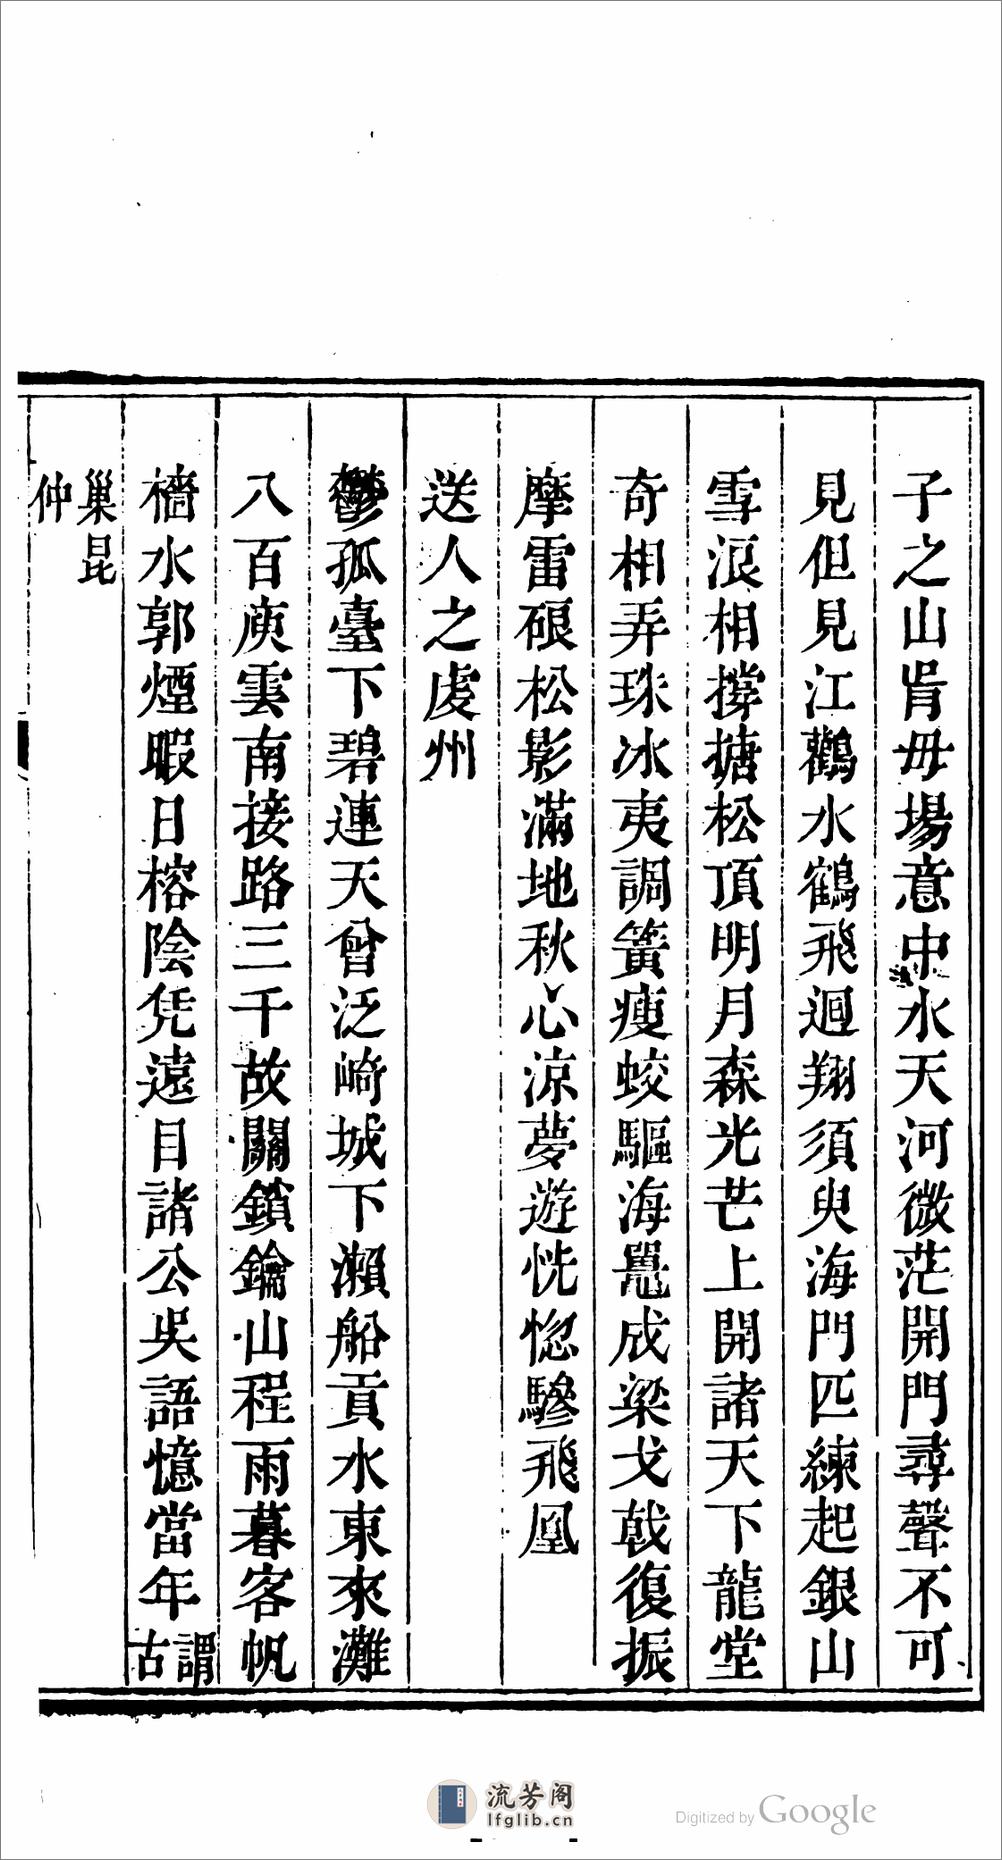 子之山肯毋場意中水天河微茫開門尋聲不可
見但見江鸛水鶴飛迴翔須臾海門匹練起銀山
雪浪相撐搪松頂明月森光芒上開諸天下龍堂
奇相弄珠冰夷調簧瘦蛟驅海鼂成梁戈戟復振
摩雷硠松影滿地秋心涼夢遊恍惚驂飛凰
送人之虔州
鬱孤臺下碧連天曾泛崎城下瀨船貢水東來灘
八百庾雲南接路三千故關鎖鑰山程雨暮客帆
檣水郭煙暇日榕陰凭遠目諸公吳語憶當年謂古
巢昆
仲
流芳阁
lfglib.cn
Digitized by Google